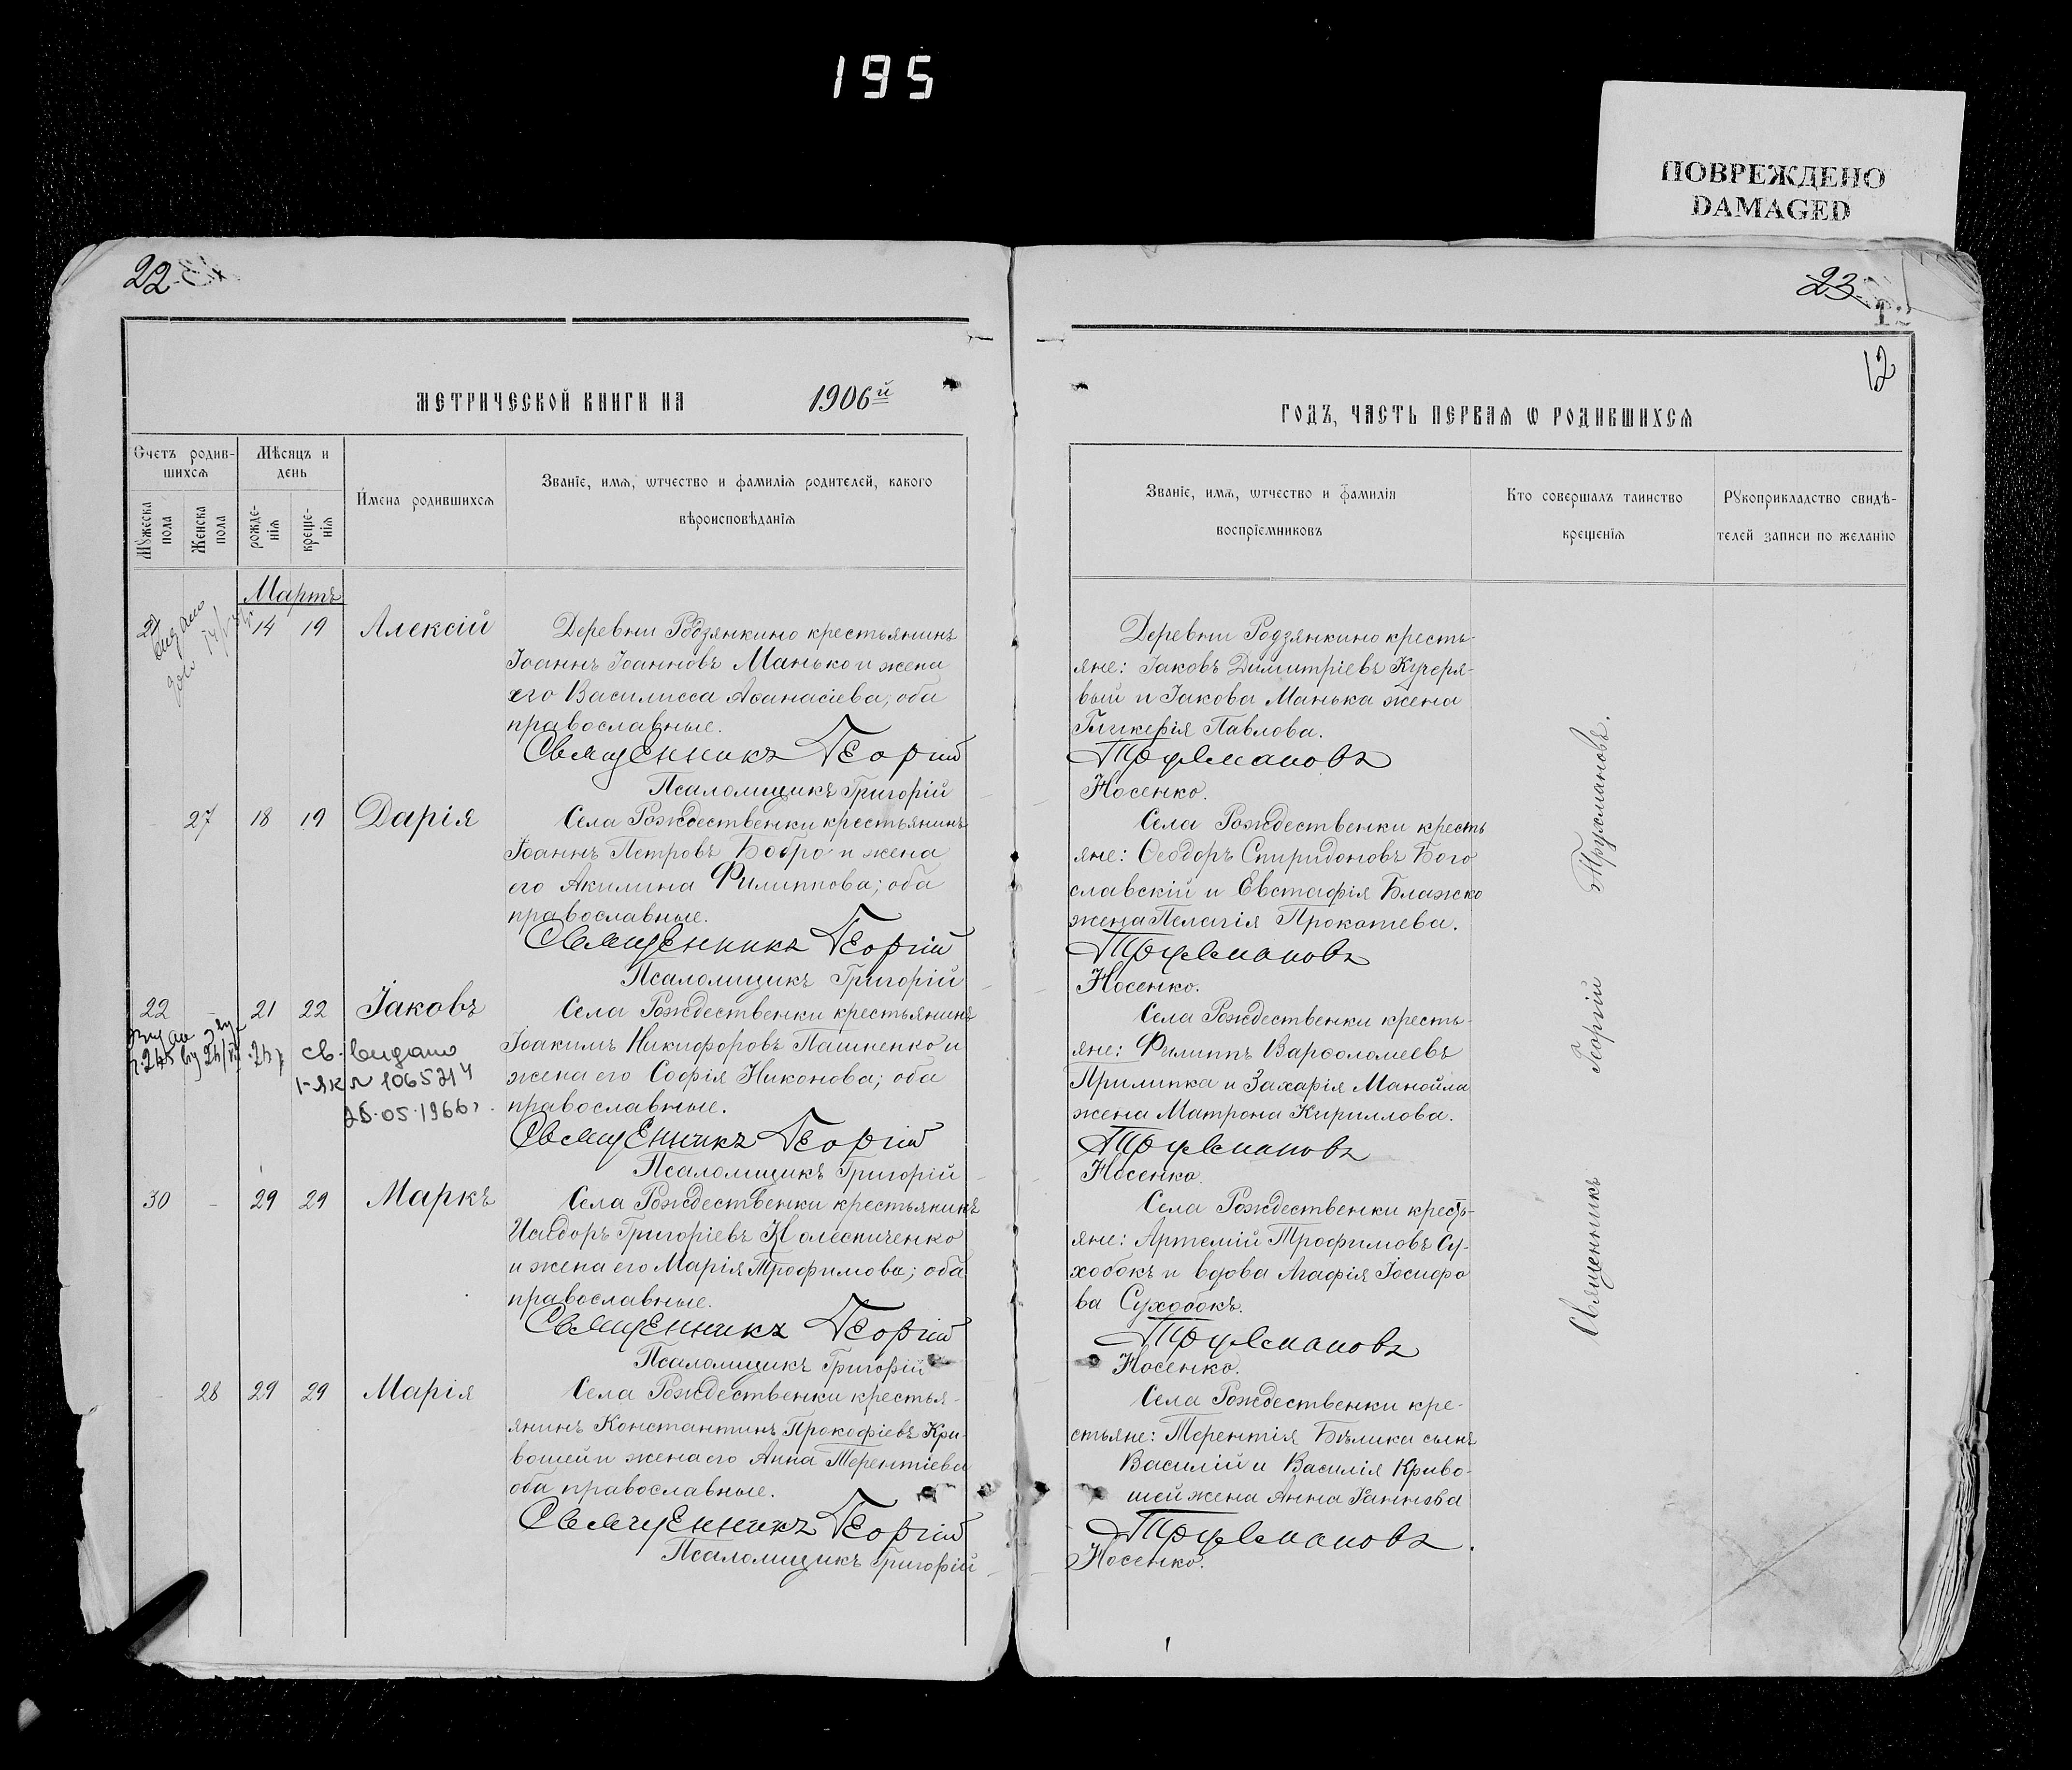 195
ПОВРЕЖДЕНО
DAMAGED
22
МЕТРИЧЕСКОЙ КНИГИ НА 1906й
Счетъ родив-
шихсѧ
Мѣсѧцъ и
день
Мꙋжеска
пола
Женска
пола
рожде-
нїѧ
креще-
нїѧ
Имена родившихсѧ
Званїе, имѧ, ѿтчество и фамилїѧ родителей, какого
вѣроисповѣданїѧ
Мартъ
14 19 Алексій
Деревни Родзянкино крестьянинъ
Іоаннъ Іоанновъ Манько и жена
его Василисса Аѳанасіева, оба
православные.
Священникъ Георгій
Псаломщикъ Григорій
27 18 19 Дарія
Села Рождественки крестьянинъ
Іоаннъ Петровъ Бобро и жена
его Акилина Филиппова; оба
православные.
Священникъ Георгій
Псаломщикъ Григорій
22 - 21 22 Іаковъ
Села Рождественки крестьянинъ
Іоакимъ Никифоровъ Пашненко и
жена его Софія Никонова; оба
православные.
св. видано
І-ЯК № 1065214
25.05.1966г.
Священникъ Георгій
Псаломщикъ Григорій
30 - 29 29 Маркъ
Села Рождественки крестьянинъ
Исидоръ Григоріевъ Колесниченко
и жена его Марія Трофимова; оба
православные.
Священникъ Георгій
Псаломщикъ Григорій
- 28 29 29 Марія
Села Рождественки крестья-
янинъ Константинъ Прокофіевъ Кри-
вошей и жена его Анна Терентіева
оба православные.
Священникъ Георгій
Псаломщикъ Григорій
23
12
ГОДЪ, ЧАСТЬ ПЕРВАѦ Ѡ РОДИВШИХСѦ
Званїе, имѧ, ѿтчество и фамилїѧ
воспрїемниковъ
Кто совершалъ таинство
крещенїѧ
Рꙋкоприкладство свидѣ-
телей записи по желанїю
Деревни Родзянкино кресть-
яне: Іаковъ Димитріевъ Кучеря-
вый и Іакова Манька жена
Гликерія Павлова.
Трухмановъ
Носенко.
Села Рождественки кресть
яне: Ѳеодоръ Спиридоновъ Бого
славскій и Евстафія Блажко
жена Пелагія Прокопіева.
Трухмановъ
Носенко.
Села Рождественки кресть-
яне: Филиппъ Варѳоломеевъ
Прилипка и Захарія Манойла
жена Матрона Кириллова.
Трухмановъ
Носенко.
Села Рождественки кресть-
яне: Артемій Трофимовъ Су-
хобокъ и вдова Агафія Іосифо
ва Сухобокъ.
Трухмановъ
Носенко.
Села Рождественки кре-
стьяне: Терентія Бѣлика сынъ
Василій и Василія Криво-
шей жена Анна
Трухмановъ.
Носенко.
Священникъ Георгій Трухмановъ.